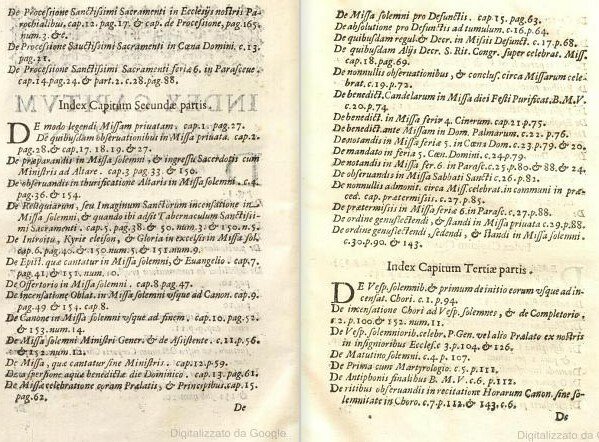 De Processione Sanctissimi Sacramenti in Ecclesijs nostris Pa-
rochialibus, cap.12. pag.17. & cap. de Processione, pag.165.
num.3. &c.
De Processione Sanctissimi Sacramenti in Cœna Domini, c.13.
pag.11.
De Processione Sanctissimi Sacramenti feria 6. in Parasceue.
cap.14.pag.24. & part.2. c.28.pag.88.
Index Capitum Secundæ partis.
DE modo legendi Missam priuatam, cap.1. pag.27.
De quibusdam obseruationibus in Missa priuata. cap.2.
pag.28. & cap.17. 18.19. & 27.
De præparandis in Missa solemni, & ingressu Sacerdotis cum
Ministris ad Altare. cap.3 pag.33. & 150.
De obseruandis in thurificatione Altaris in Missa solemni, c.4.
pag.36. & 154.
De Reliquiarum, seu Imaginum Sanctorum incensatione in
Missa solemni, & quando ibi adsit Tabernaculum Sanctissi-
mi Sacramenti. cap.5. pag.38. & 50. num.3. & 150. n.5.
De Introitu, Kyrie eleison, & Gloria in excelsis in Missa sol.
cap.6. pag.40. & 150. num.5. & 151. num.9.
De Epist. quæ cantatur in Missa solemni, & Euangelio. cap.7.
pag.41. & 151. num.10.
De Offertorio in Missa solemni. cap.8. pag.47.
De incensatione Oblat. in Missa solemni vsque ad Canon. cap.9.
pag.49 & 154. cap.8.
De Canone in Missa solemni vsque ad finem, cap.10. pag.52.
& 153. num.14.
De Missa solemni Ministri Gener. & de Assistente. c.11.p.56.
& 152. num.12.
De Missa, quæ cantatur sine Ministris. cap.12.p.59.
De aspersione aquæ benedictæ die Dominico. cap.13. pag.61.
De Missæ celebratione coram Prælatis, & Principibus, cap.15.
pag.62.
De
Digitalizzato da Google
De Missa solemni pro Defunctis. cap.15.pag.63.
De absolutione pro Defunctis ad tumulum. c.16.p.64.
De quibusdam regul. & Decr. in Missis Defunct. c.17.p.68.
De quibusdam Alijs Decr. S. Rit. Congr. super celebrat. Miss.
cap.18.pag.69.
De nonnullis obseruationibus, & conclus. circa Missarum cele-
brat. c.19.p.72.
De benedict. Candelarum in Missa diei Festi Purificat. B.M.V.
c.20.p.74.
De benedict. in Missa feriæ 4. Cinerum. cap.21 p.75.
De benedict. ante Missam in Dom. Palmarum. c.22. p.76.
De notandis in Missa feria 5. in Cœna Dom. c.23.p.79. & 20.
De mandato in feria 5. Cœn. Domini. c.24.p.79.
De notandis in Missa fer.6. in Parasc. c.25.p.80. & 88. & 24.
De obseruandis in Missa Sabbati Sancti. c.26.p.82.
De nonnullis admonit. circa Miss. celebrat. in communi in præ-
ced. cap. prætermissis. c.27. p.85.
De prætermissis in Missa feriæ 6. in Parasc. c.27.p.88.
De ordine genuflectendi, & standi in Missa priuata c.29.p.88.
De ordine genuflectendi, sedendi, & standi in Missa solemni.
c.30.p.90. & 143.
Index Capitum Tertiæ partis.
DE Vesp. solemnib. & primum de initio eorum vsque ad in-
censat. Chori. c.1. p.94.
De incensatione Chori ad Vesp. solemnes, & de Completorio.
c.2. p.100. & 152. num.11.
De Vesp. solemniorib. celebr. P. Gen. vel alio Prælato ex nostris
in insignioribus Eccles. c.3.p.104. & 126.
De Matutino solemni. c.4. p.107.
De Prima cum Martyrologio. c.5. p.111.
De Antiphonis finalibus B. M.V. c.6. p.112.
De ritibus obseruandis in recitatione Horarum Canon. sine so-
lemnitate in Choro. c.7.p.112. & 143. c.6.
De
Digitalizzato da G